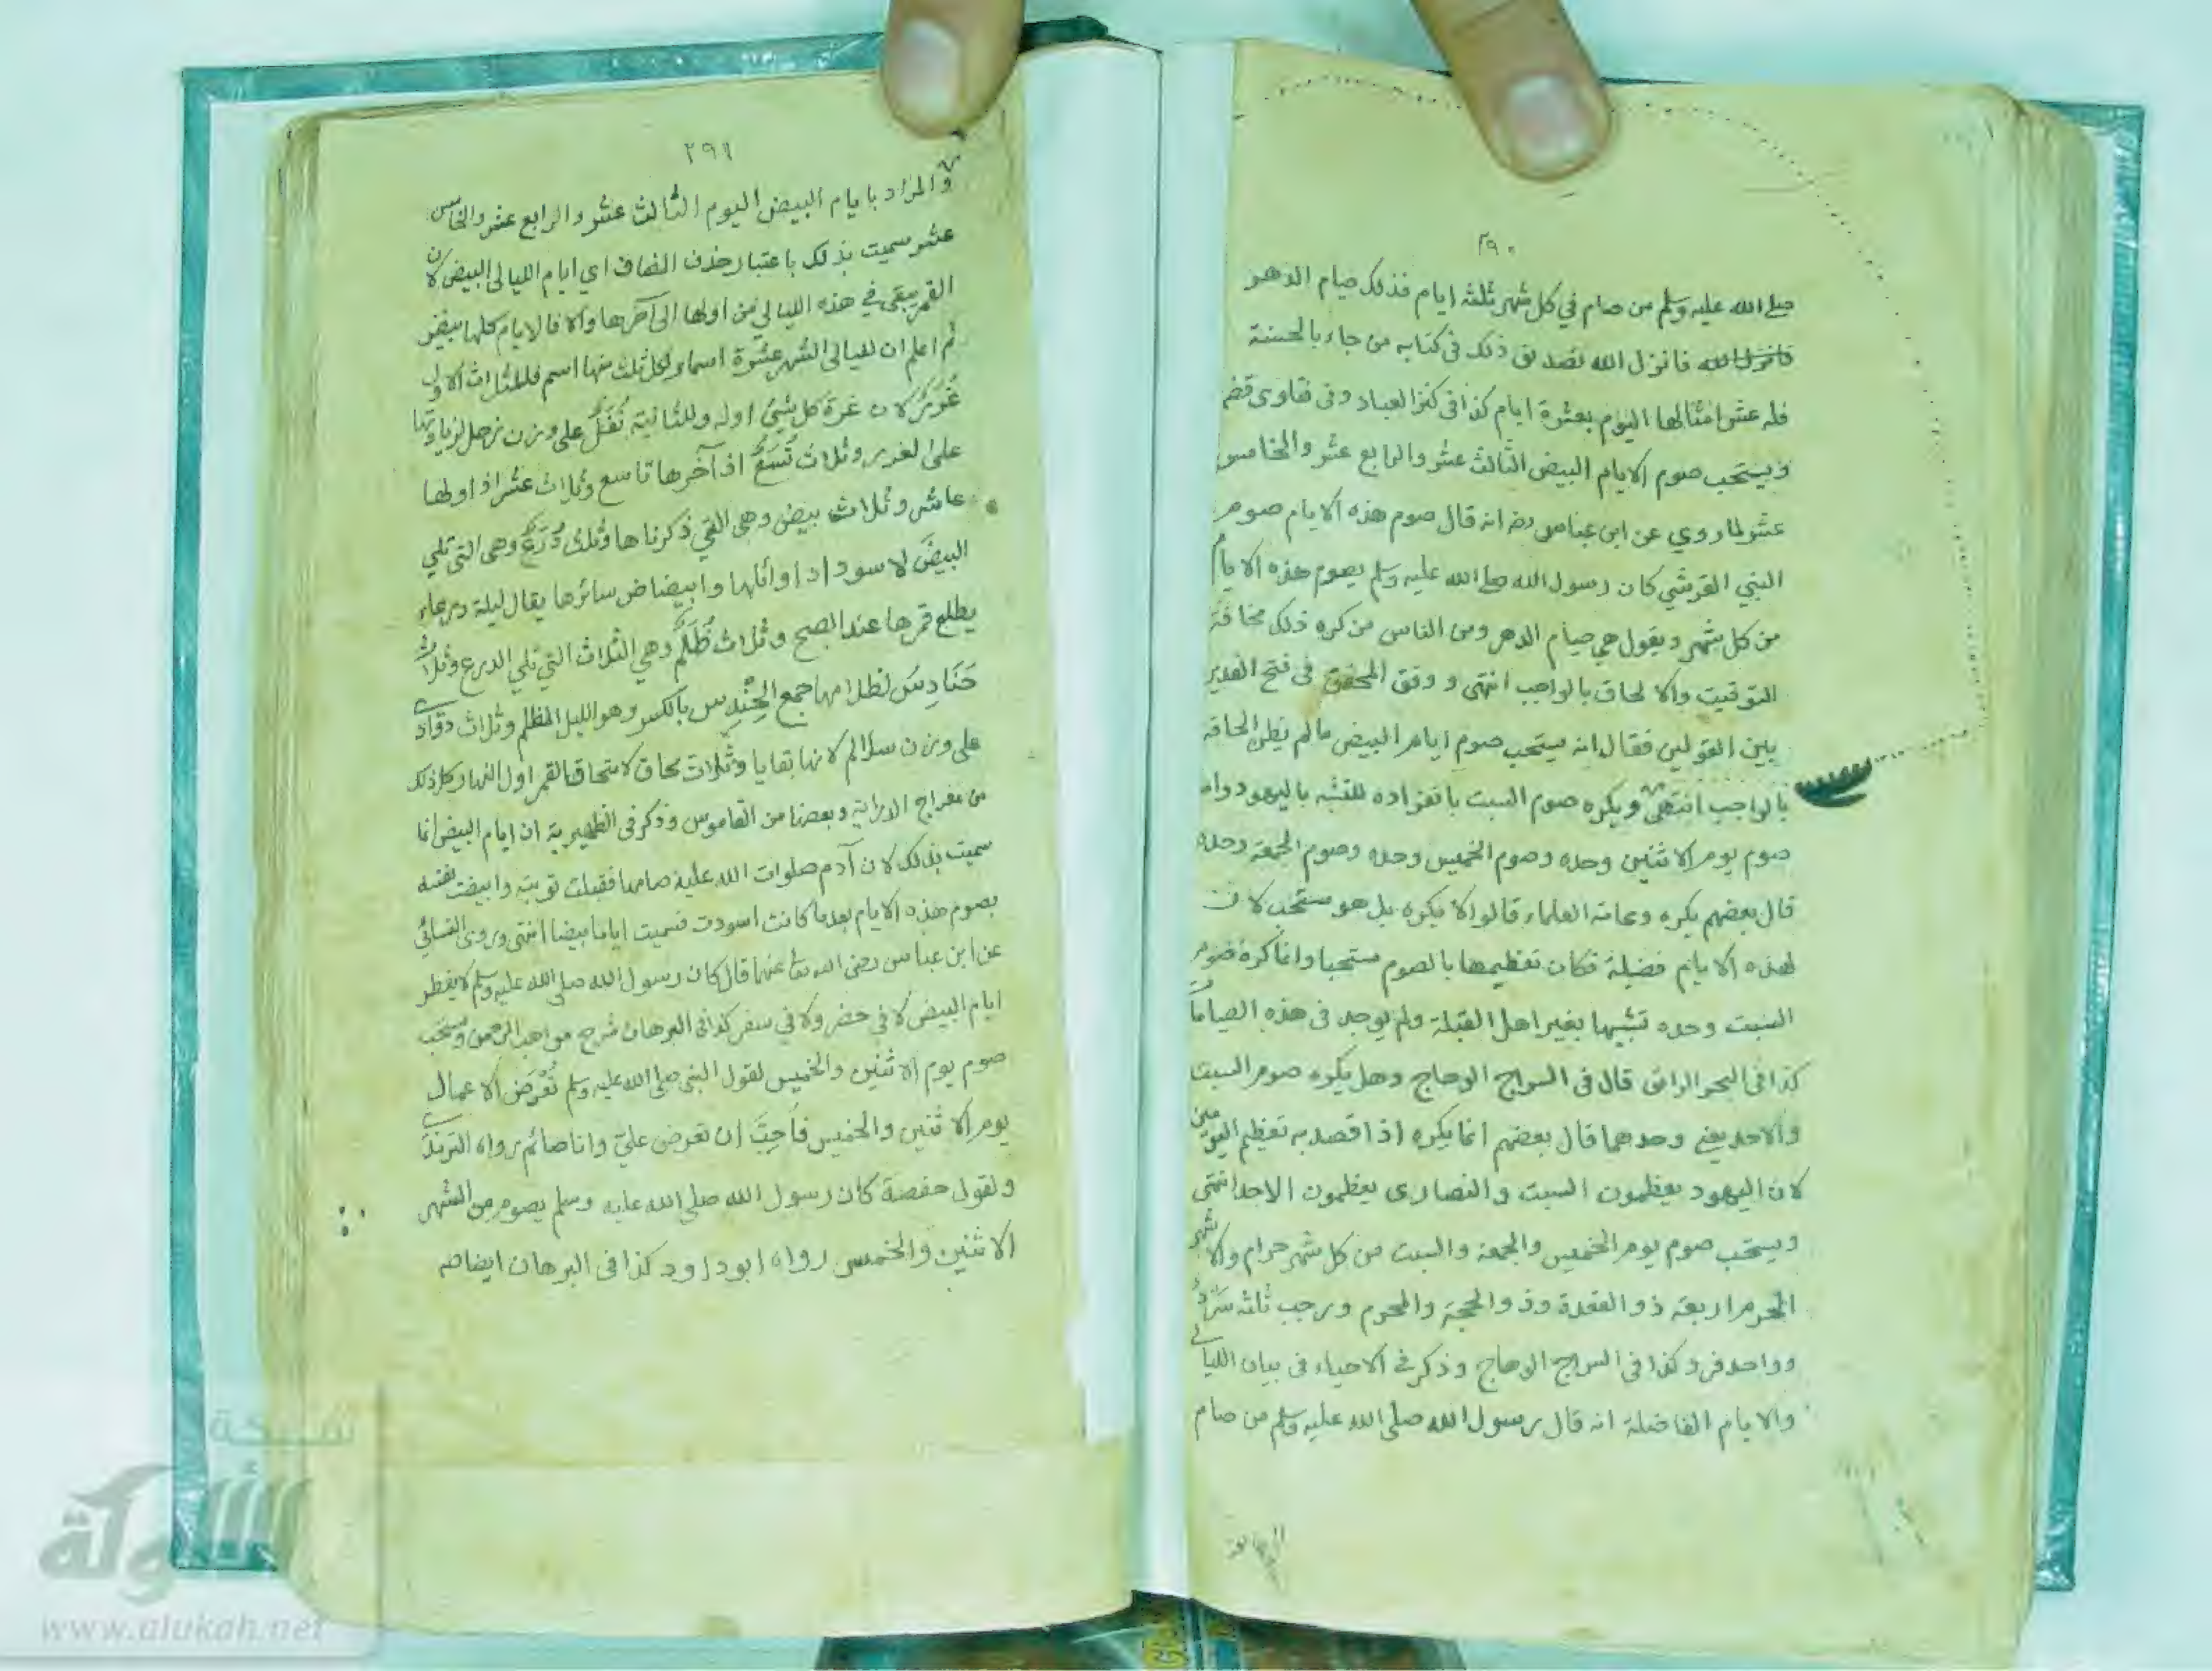 ٢٩٠
صلى الله عليه وسلم من صام في كل شهر ثلثة ايام فذلك صيام الدهر
فانزل الله فانزل الله تصديق ذلك فى كتابه من جاء بالحسنة
فله عشر امثالها اليوم بعشرة ايام كذا فى كنز العباد وفى فتاوى قضم
ويستحب صوم الايام البيض الثالث عشر والرابع عشر والخامس
عشر لما روي عن ابن عباس رضه انه قال صوم هذه الايام صوم
النبي القرشي كان رسول الله صلى الله عليه وسلم يصوم هذه الايام
من كل شهر ويقول هي صيام الدهر ومن الناس من كره ذلك مخافة
التوقيت والالحاق بالواجب انتهى ووفق المحقق فى فتح القدير
بين القولين فقال انه يستحب صوم ايام البيض مالم يظن الحاقه
بالواجب انتهى ويكره صوم السبت بانفراده للتشبه باليهود واما
صوم يوم الاثنين وحده وصوم الخميس وحده وصوم الجمعة وحده
قال بعضهم يكره وعامة العلماء قالوا لا يكره بل هو مستحب لان
لهذه الايام فضيلة فكان تعظيمها بالصوم مستحبا وانما كره صوم
السبت وحده تشبيها بغير اهل القبلة ولم يوجد فى هذه الصيامات
كذا فى البحر الرائق قال فى السراج الوهاج وهل يكره صوم السبت
والاحد يعني وحدهما قال بعضهم انما يكره اذا قصد به تعظيم اليومين
لان اليهود يعظمون السبت والنصارى يعظمون الاحد انتهى
ويستحب صوم يوم الخميس والجمعة والسبت من كل شهر حرام والاشهر
الحرم اربعة ذو القعدة وذو الحجة والمحرم ورجب ثلثة سرد
وواحد فرد كذا فى السراج الوهاج وذكر فى الاحياء فى بيان الليالي
والايام الفاضلة انه قال رسول الله صلى الله عليه وسلم من صام
٢٩١
والمراد بايام البيض اليوم الثالث عشر والرابع عشر والخامس
عشر سميت بذلك باعتبار حذف المضاف اي ايام الليالى البيض لان
القمر يبقى في هذه الليالي من اولها الى آخرها والا فالايام كلها بيض
ثم اعلم ان لليالى الشهر عشرة اسماء لكل ثلث منها اسم فللثلاث الاول
غُرَرٌ لان غرة كل شئ اوله وللثانية نُفَلٌ على وزن زحل لزيادتها
على الغرر وثلاث تُسَعٌ اذ آخرها تاسع وثلاث عشر اذ اولها
عاشر وثلاث بيض وهى التي ذكرناها وثلث دُرَعٌ وهى التى تلي
البيضَ لاسوداد اوائلها وابيضاض سائرها يقال ليلة درعاء
يطلع قمرها عند الصبح وثلاث ظُلَمٌ وهي الثلاث التي تلي الدرع وثلاث
حَنَادِسَ لظلامها جمع الحِنْدِس بالكسر وهو الليل المظلم وثلاث دوادى
على وزن سلالم لانها بقايا وثلاث محاق لانمحاق القمر اول النهار وكل ذلك
من معراج الدراية وبعضها من القاموس وذكر فى الظهيرية ان ايام البيض انما
سميت بذلك لان آدم صلوات الله عليه صامها فقبلت توبته وابيضت نفسه
بصوم هذه الايام بعد ما كانت اسودت فسميت اياما بيضا انتهى وروى النسائي
عن ابن عباس رضى الله تعالى عنهما قال كان رسول الله صلى الله عليه وسلم لا يفطر
ايام البيض لا فى حضر ولا في سفر كذا فى البرهان شرح مواهب الرحمن ويستحب
صوم يوم الاثنين والخميس لقول النبى صلى الله عليه وسلم تُعْرَض الاعمال
يوم الاثنين والخميس فاُحِبَّ ان تعرض عليّ وانا صائم رواه الترمذى
ولقول حفصة كان رسول الله صلى الله عليه وسلم يصوم من الشهر
الاثنين والخمس رواه ابو داود كذا فى البرهان ايضا صه
شبكة
الألوكة
www.alukah.net